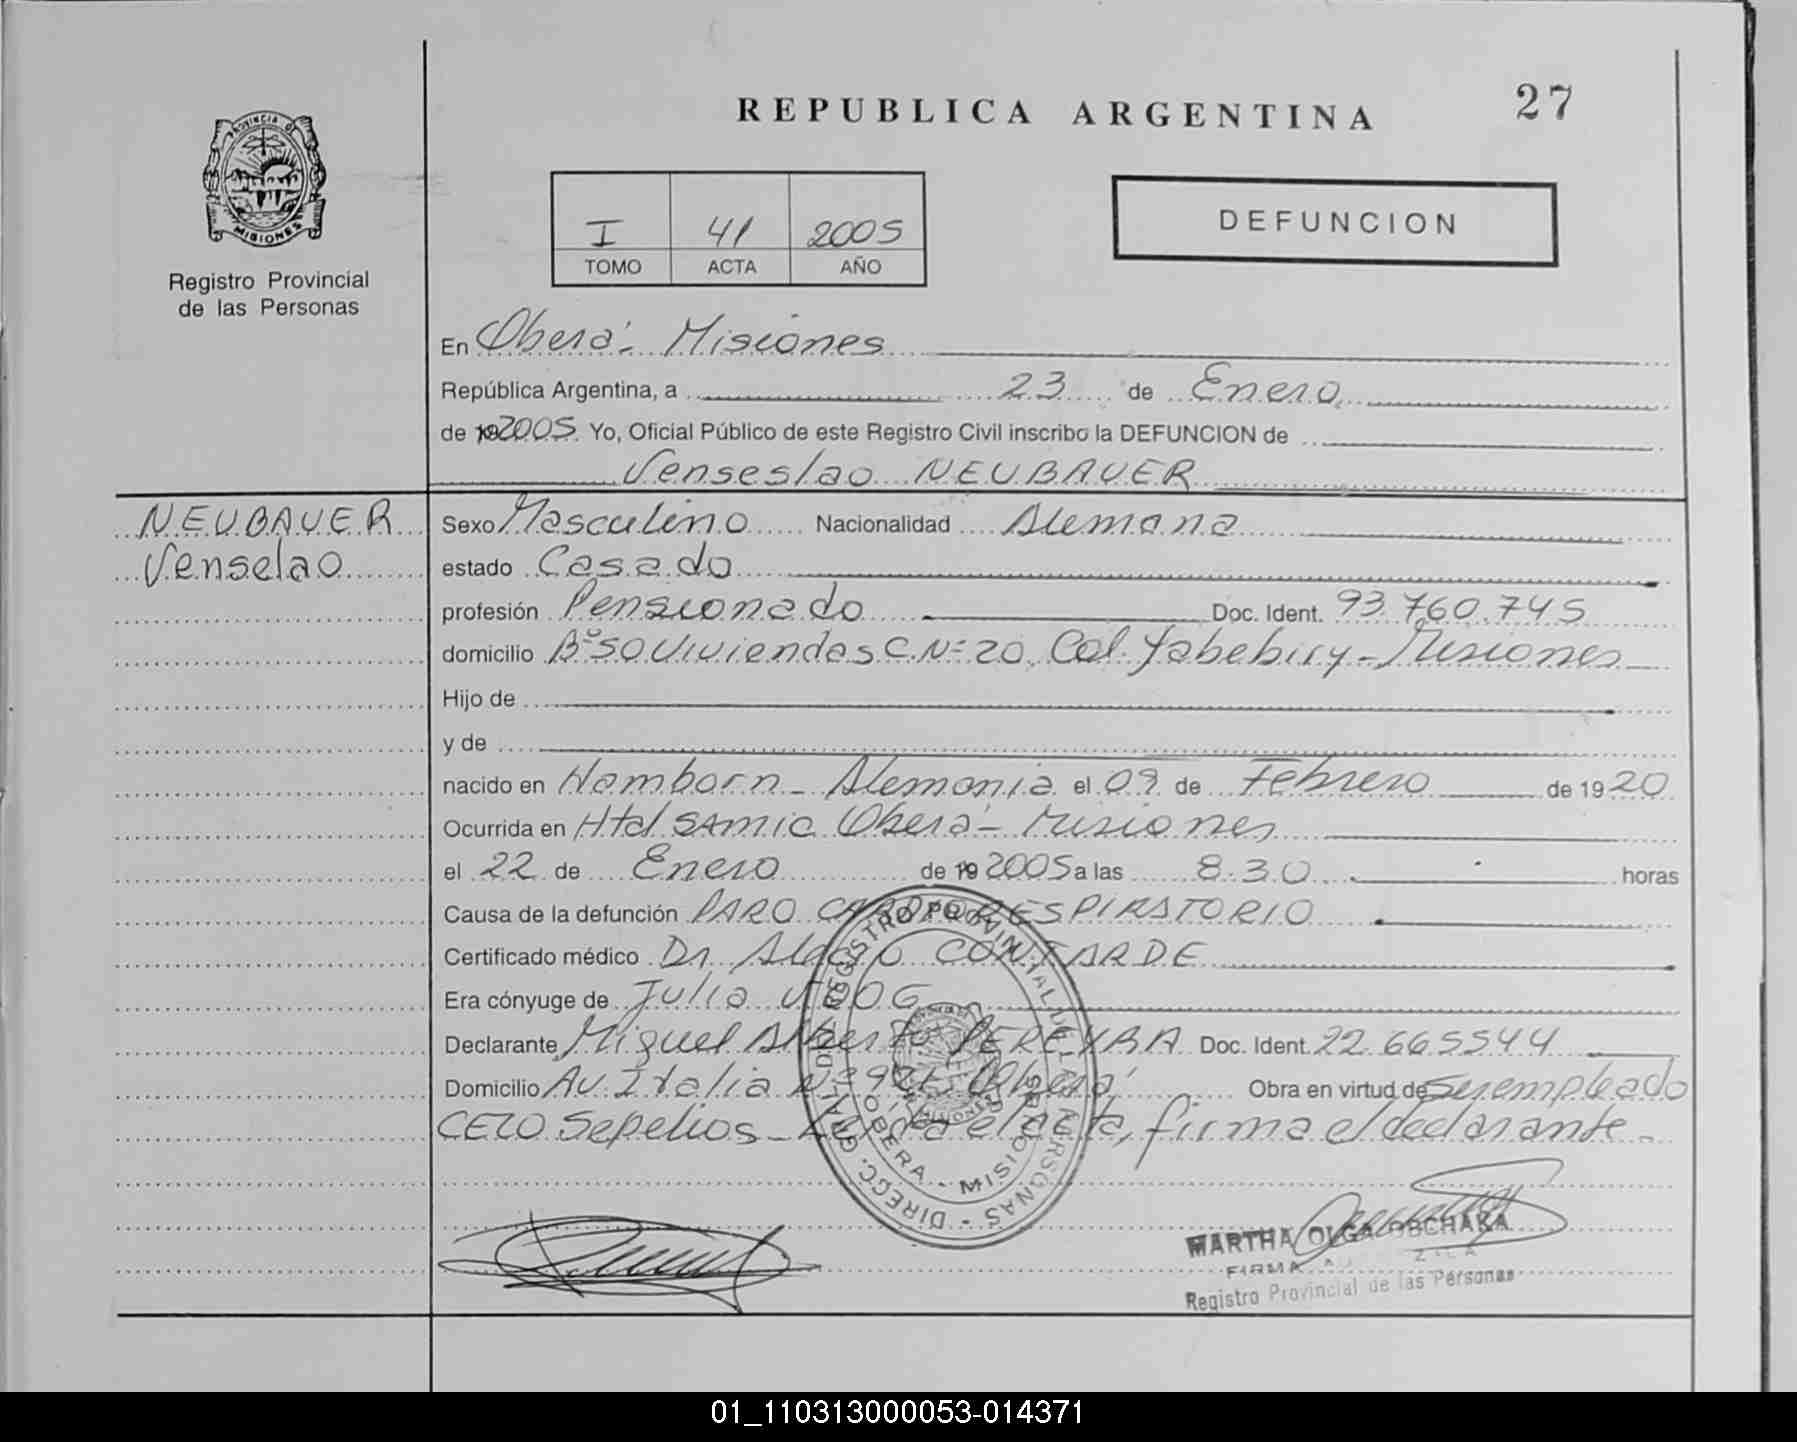 27
REPUBLICA ARGENTINA
PROVINCIA DE
MISIONES
Registro Provincial
de las Personas
I 41 2005
TOMO ACTA AÑO
DEFUNCION
En Oberá - Misiones
República Argentina, a 23 de Enero
de 2005 Yo, Oficial Público de este Registro Civil inscribo la DEFUNCION de
Venseslao NEUBAUER
NEUBAUER
Venselao
Sexo Masculino Nacionalidad Alemana
estado Casado
profesión Pensionado Doc. Ident. 93.760.745
domicilio Bº 50 Viviendas C. Nº 20 Col. Yabebiry - Misiones
Hijo de
y de
nacido en Hamborn - Alemania el 09 de Febrero de 1920
Ocurrida en Htal SAMIC Oberá - Misiones
el 22 de Enero de 19 2005 a las 8.30 horas
Causa de la defunción PARO CARDIORESPIRATORIO
Certificado médico Dr. CONTARDE
Era cónyuge de Julia
Declarante Miguel Alberto PEREYRA Doc. Ident. 22.665544
Domicilio Av. Italia Nº Oberá Obra en virtud de ser empleado
CEZO Sepelios - el acta, firma el declarante -
DIRECC. GRAL. DEL REGISTRO PROVINCIAL DE LAS PERSONAS
OBERA - MISIONES
MARTHA OLGA OBCHAKA
FIRMA
Registro Provincial de las Personas
01_110313000053-014371